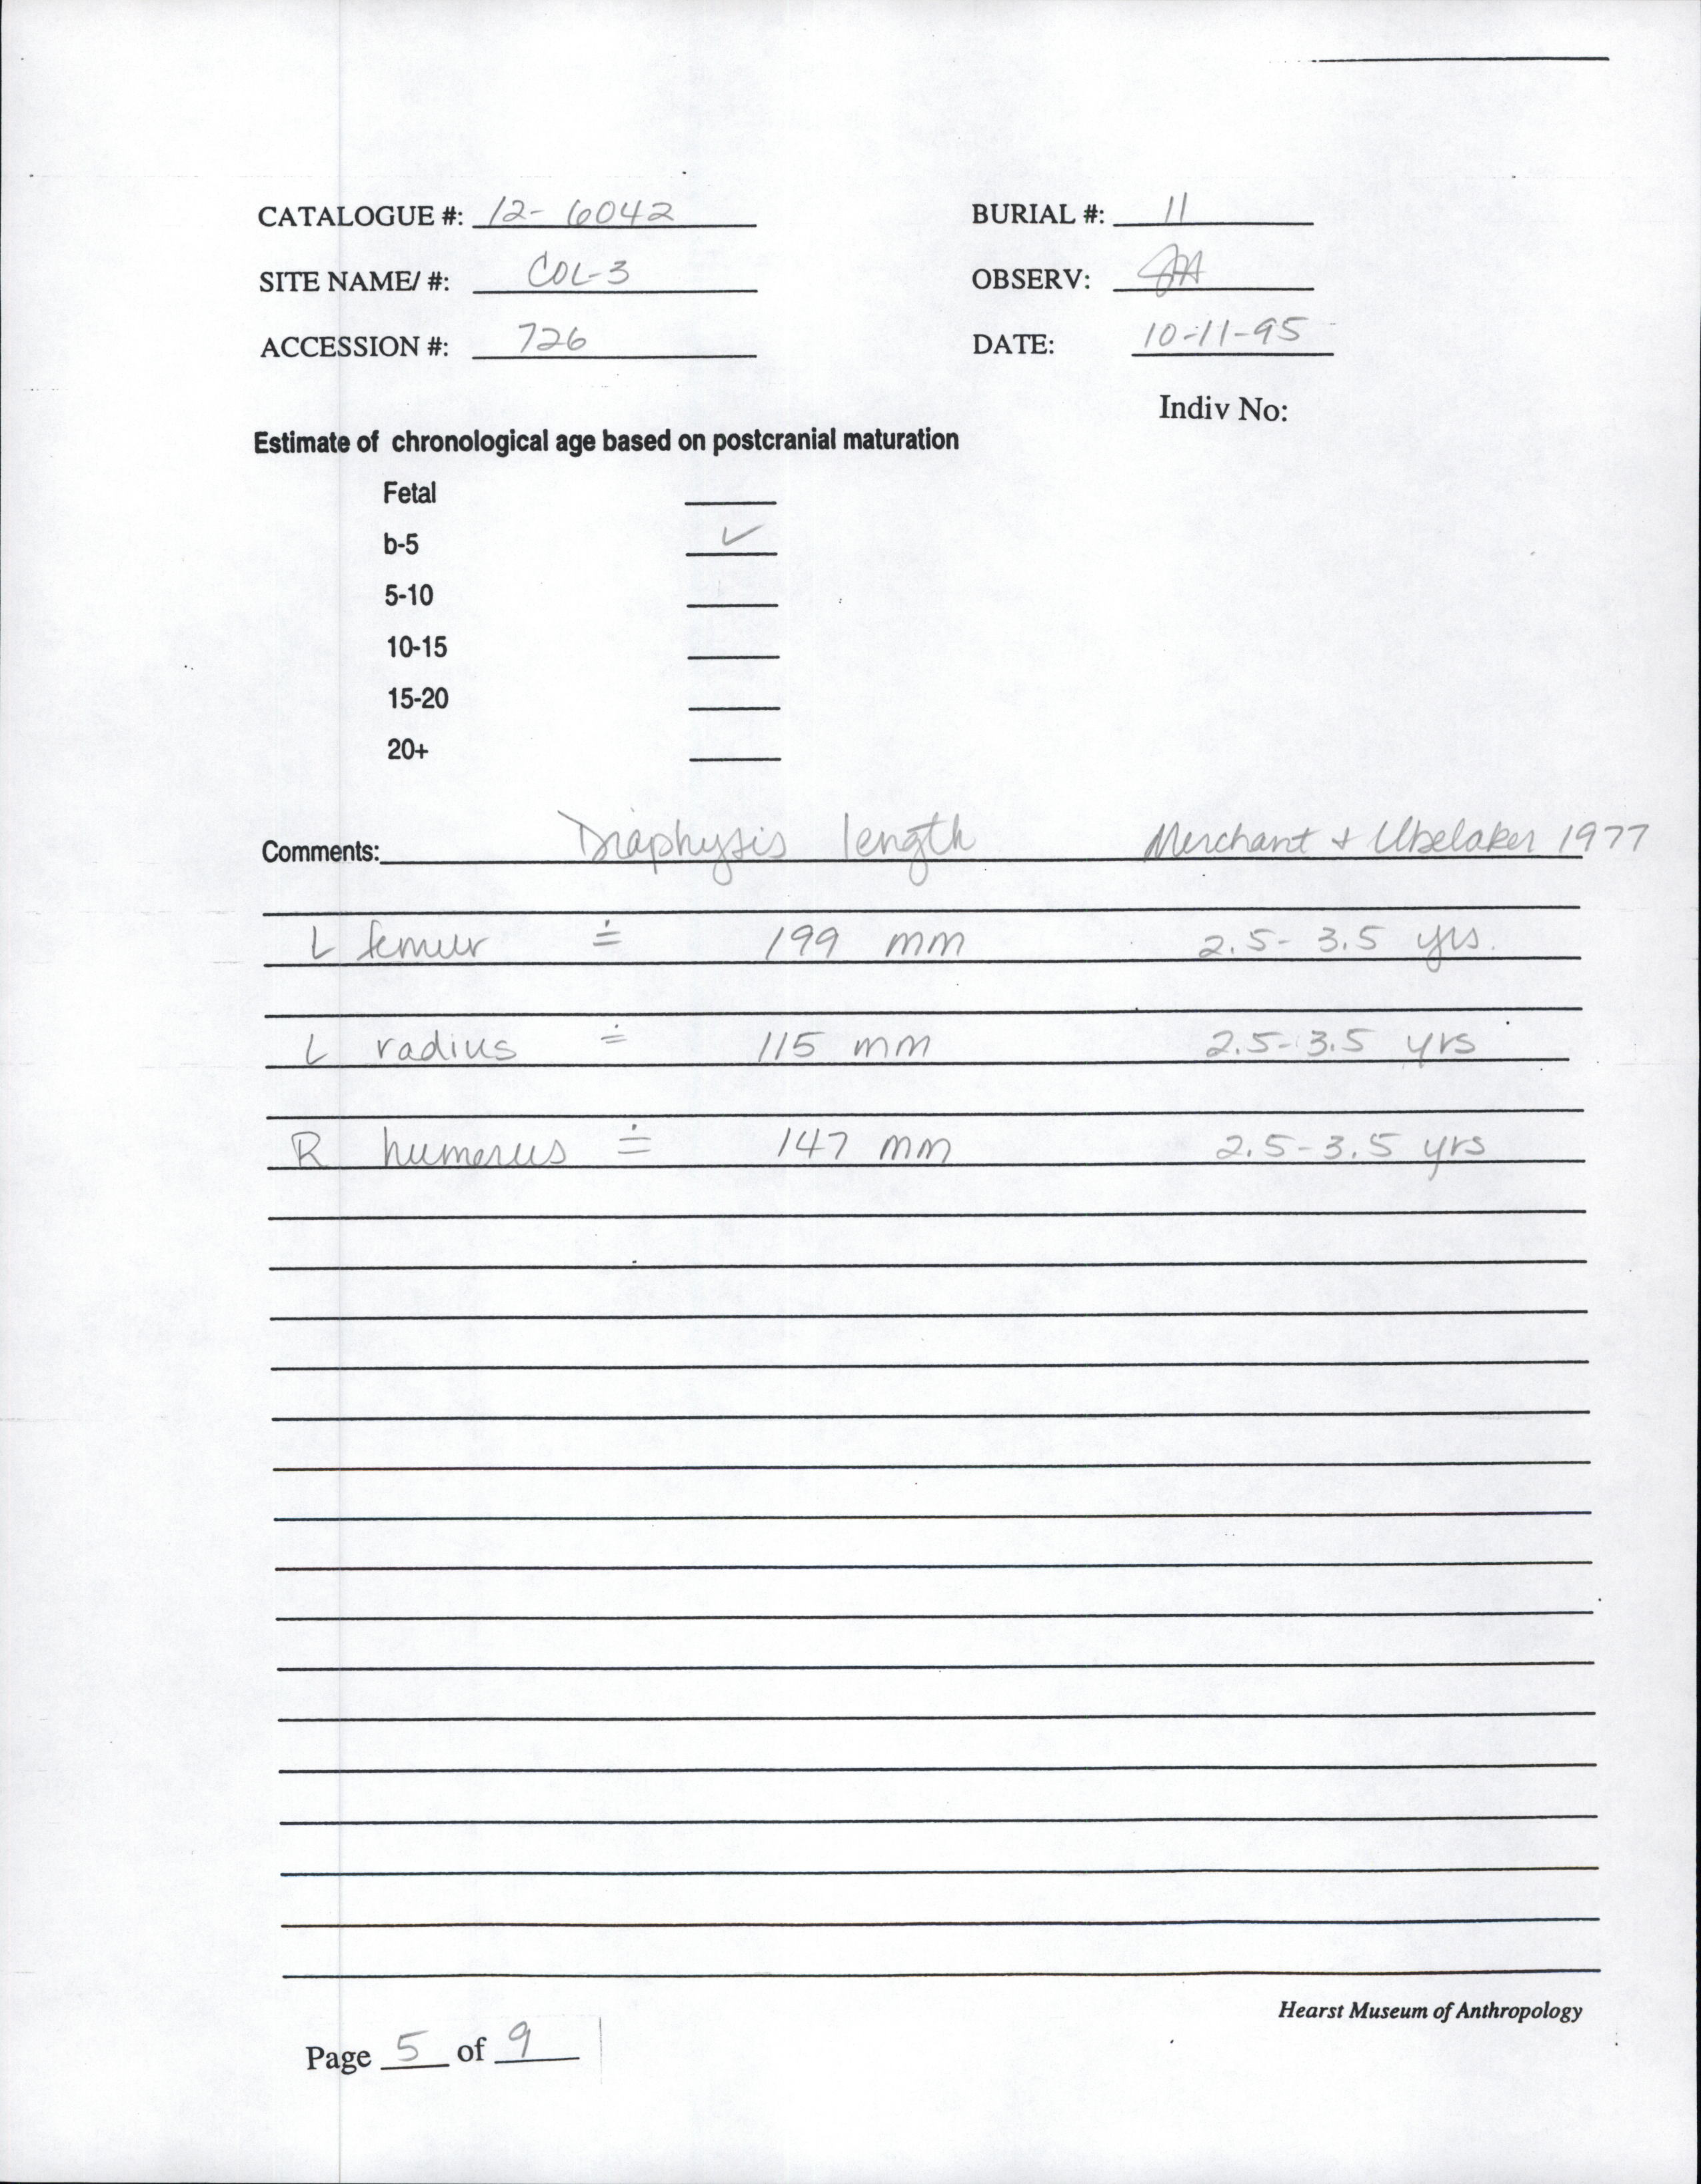 CATALOGUE #: 12-6042 BURIAL #: 11
SITE NAME/ #: COL-3 OBSERV:
ACCESSION #: 726 DATE: 10-11-95
Indiv No:
Estimate of chronological age based on postcranial maturation
Fetal
b-5 ✓
5-10
10-15
15-20
20+
Comments: Diaphysis length Merchant + Ubelaker 1977
L femur ≐ 199 mm 2.5-3.5 yrs.
L radius ≐ 115 mm 2.5-3.5 yrs
R humerus ≐ 147 mm 2.5-3.5 yrs
Hearst Museum of Anthropology
Page 5 of 9